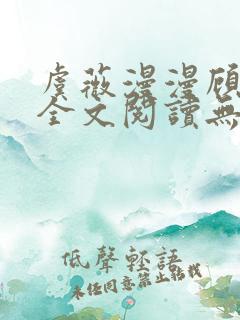 虞薇漫漫顾
全文閱讀無
低聲輕語
未经同意禁止转载